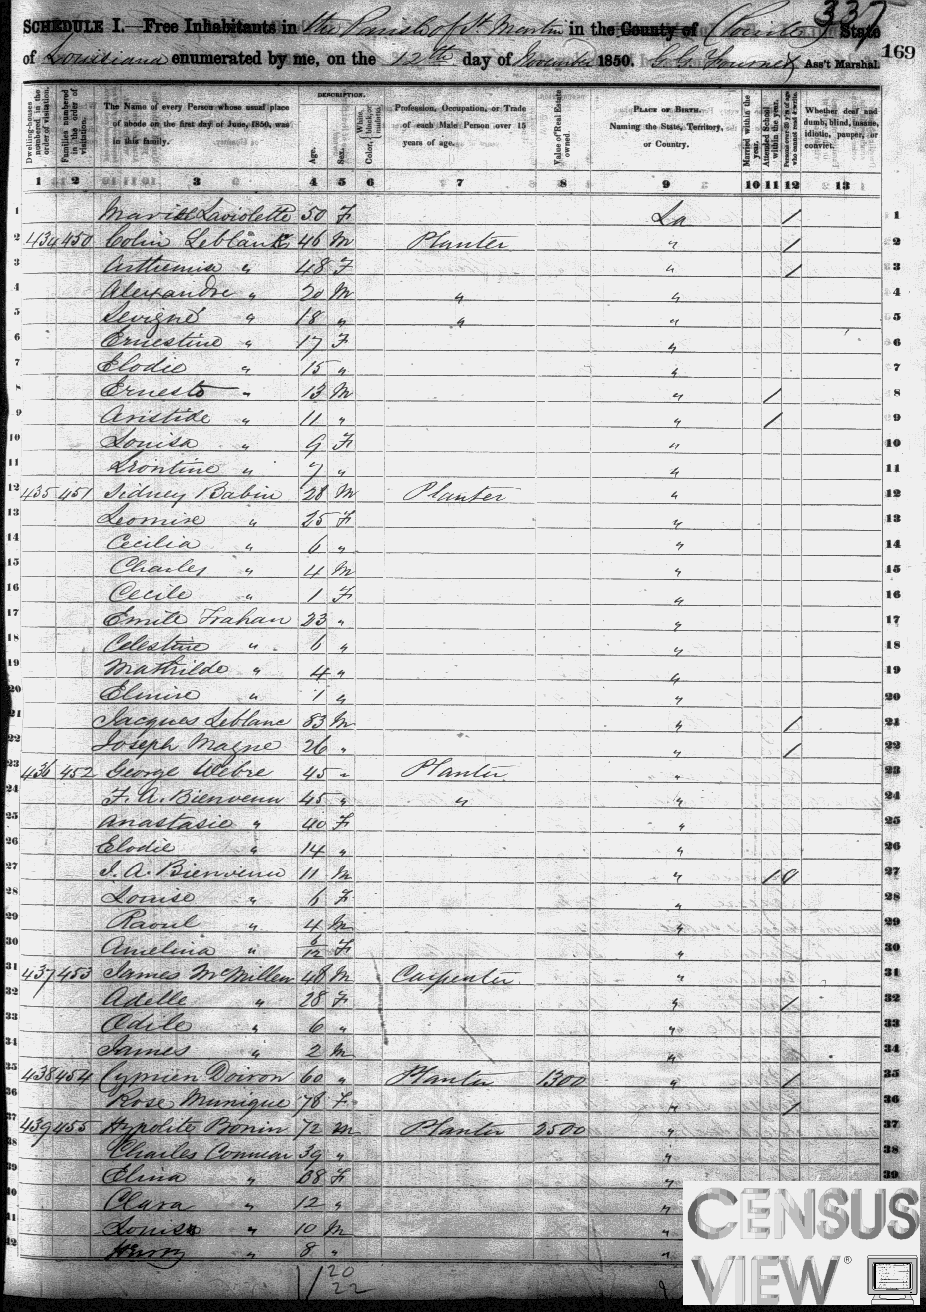 337
SCHEDULE I.—Free Inhabitants in the Parish of St Martin in the County of State
169
of Louisiana enumerated by me, on the 12th day of November 1850. Ass't Marshal.
Dwelling-houses numbered in the order of visitation.
Families numbered in the order of visitation.
The Name of every Person whose usual place of abode on the first day of June, 1850, was in this family.
DESCRIPTION.
Age.
Sex.
Color, White, black, or mulatto.
Profession, Occupation, or Trade of each Male Person over 15 years of age.
Value of Real Estate owned.
PLACE OF BIRTH. Naming the State, Territory, or Country.
Married within the year.
Attended School within the year.
Persons over 20 y'rs of age who cannot read & write.
Whether deaf and dumb, blind, insane, idiotic, pauper, or convict.
1 2 3 4 5 6 7 8 9 10 11 12 13
1 Laviolette 50 F La / 1
2 434 450 Colin Leblanc 46 M Planter " / 2
3 Arthemise " 48 F " / 3
4 Alexandre " 20 M " " 4
5 Sevigné " 18 " " " 5
6 Ernestine " 17 F " 6
7 Elodie " 15 " " 7
8 Ernest " 13 M " / 8
9 Aristide " 11 " " / 9
10 Louisa " 9 F " 10
11 Leontine " 7 " " 11
12 435 451 Sidney Babin 28 M Planter " 12
13 Leomise " 25 F " 13
14 Cecilia " 6 " " 14
15 Charles " 4 M " 15
16 Cecile " 1 F " 16
17 Emile Trahan 23 " " 17
18 Celestine " 6 " " 18
19 Mathilde " 4 " " 19
20 Elmire " 1 " " 20
21 Jacques Leblanc 83 M " / 21
22 Joseph Magne 26 " " / 22
23 436 452 George Webre 45 " Planter " 23
24 F. A. Bienvenu 45 " " " 24
25 Anastasie " 40 F " 25
26 Elodie " 14 " " 26
27 J. A. Bienvenu 11 M " / 27
28 Louise " 6 F " 28
29 Raoul " 4 M " 29
30 Amelina " 6/12 F " 30
31 437 453 James McMillen 48 M Carpenter " 31
32 Adelle " 28 F " / 32
33 Odile " 6 " " 33
34 James " 2 M " 34
35 438 454 Cyprien Doiron 60 " Planter 1300 " / 35
36 Rose Munique 78 F " / 36
37 439 455 Hypolite Bonin 72 M Planter 2500 " 37
38 Charles 39 " " 38
39 Elina " 38 F " 39
40 Clara " 12 " "
41 Louis " 10 M "
42 Henry " 8 " "
20
22
CENSUS
VIEW®